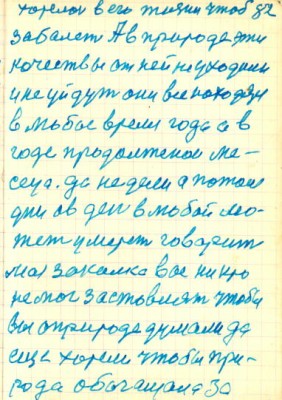 хотели в его жизни чтоб 82
забалет А в природе эти
качествы от ней не уходили
и не уйдут они все находян
в любое время года а в
годе продолженой ме-
сеца. да недели а потом
дни ов ден в любой мо-
жет умерет говорит
моя закалка вас никто
не мог заставлят чтобы
вы о природе думали да
еще хотели чтобы при-
рода обогащала за